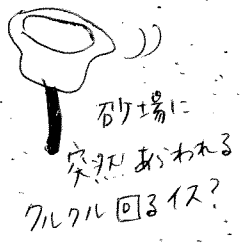 砂場に
突然あらわれる
クルクル回るイス?